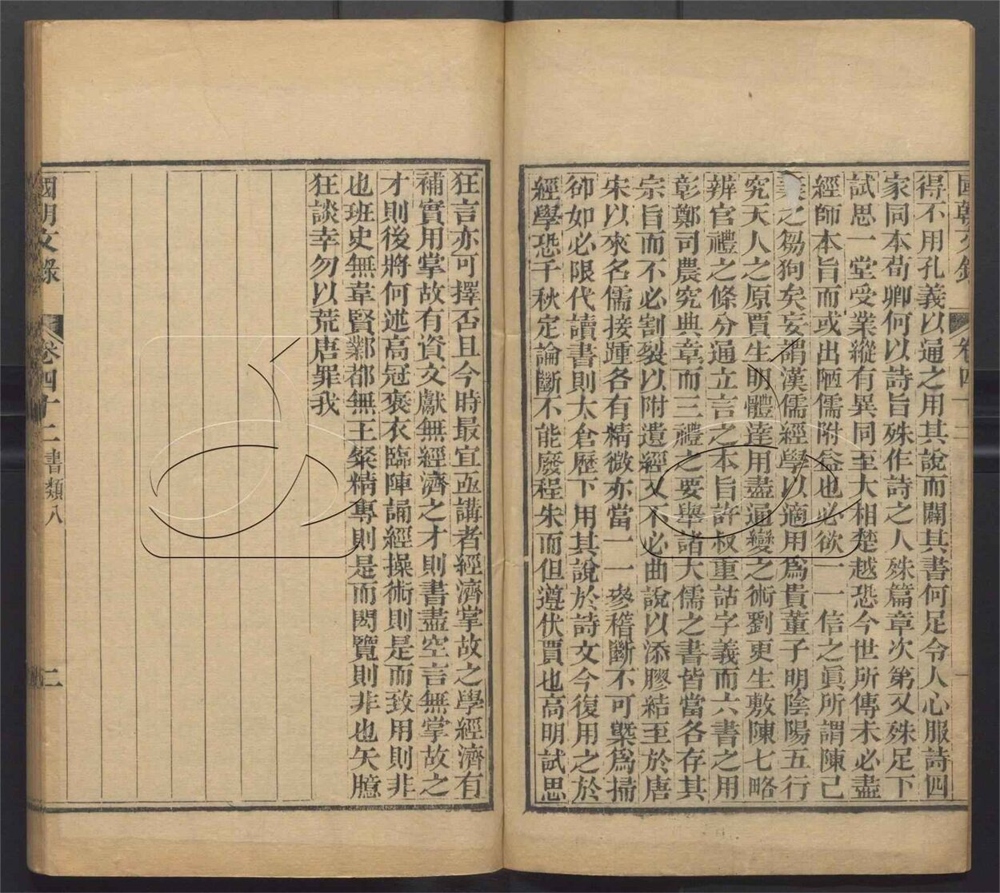 國朝文錄 卷四十二
得不用孔義以通之用其說而關其書何足令人心服詩四
家同本荀卿何以詩旨殊作詩之人殊篇章次第又殊足下
試思一堂受業縱有異同至大相楚越恐今世所傳未必盡
經師本旨而或出陋儒附益也必欲一一信之眞所謂陳己
之芻狗矣妄謂漢儒經學以適用爲貴董子明陰陽五行
究天人之原賈生明體達用盡通變之術劉更生敷陳七略
辨官禮之條分通立言之本旨許叔重詁字義而六書之用
彰鄭司農究典章而三禮之要舉諸大儒之書皆當各存其
宗旨而不必割裂以附遺經又不必曲說以添膠結至於唐
宋以來名儒接踵各有精微亦當一一參稽斷不可槩爲掃
卻如必限代讀書則太倉歷下用其說於詩文今復用之於
經學恐千秋定論斷不能廢程朱而但遵伏賈也高明試思
狂言亦可擇否且今時最宜亟講者經濟掌故之學經濟有
補實用掌故有資文獻無經濟之才則書盡空言無掌故之
才則後將何述高冠褒衣臨陣誦經操術則是而致用則非
也班史無韋賢鄴都無王粲精專則是而閎覽則非也矢臆
狂談幸勿以荒唐罪我
國朝文錄 卷四十二書類八 二